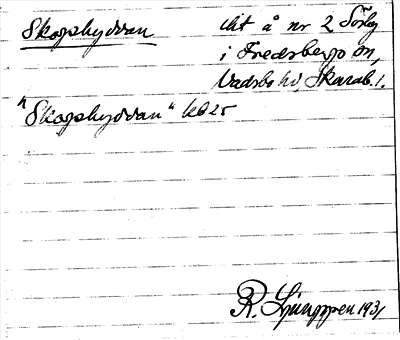 Skogshyddan
ägt å nr 2 Sörby
i Fredsbergs sn,
Vadsbo hd, Skarab. l.
"Skogshyddan" kb 25
R. Ljunggren 1931